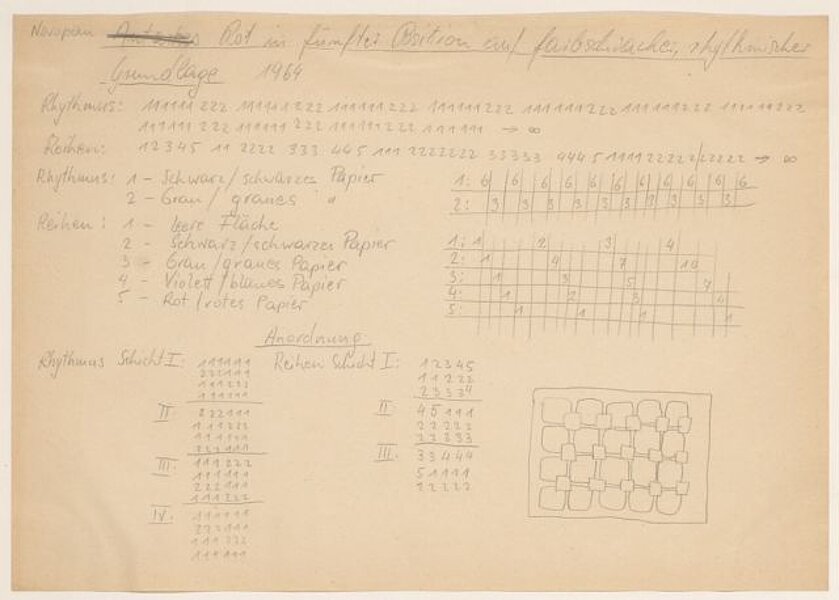 Rot in fünfter Position auf farbschwacher, rhythmischer
Grundlage 1964
Rhythmus: 111111 222 111111 222 111111 222 111111 222 111111 222 111111 222 111111 222
111111 222 111111 222 111111 222 111111 → ∞
Reihen: 1 2 3 4 5 11 2222 333 44 5 111 2222222 33333 444 5 1111 2222222222 → ∞
Rhythmus: 1 - Schwarz/schwarzes Papier
2 - Grau/graues "
Reihen: 1 - leere Fläche
2 - Schwarz/schwarzes Papier
3 - Grau/graues Papier
4 - Violett/blaues Papier
5 - Rot/rotes Papier
1: 6 6 6 6 6 6 6 6 6 6 6
2: 3 3 3 3 3 3 3 3 3 3
1: 1 2 3 4
2: 1 4 7 10
3: 1 3 5 7
4: 1 2 3 4
5: 1 1 1 1
Anordnung
Rhythmus Schicht I: 111111
222111
111222
111111
II: 222111
111222
111111
222111
III: 111222
111111
222111
111222
IV: 111111
222111
111222
111111
Reihen Schicht I: 12345
11222
23334
II: 45111
22222
22333
III: 33444
51111
22222